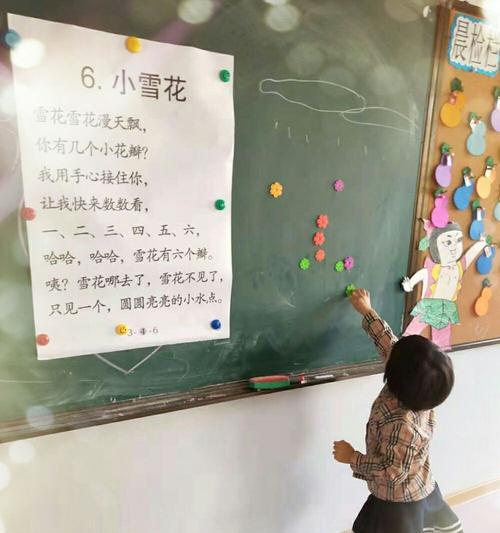 6. 小雪花
雪花雪花漫天飘，
你有几个小花瓣？
我用手心接住你，
让我快来数数看，
一、二、三、四、五、六，
哈哈，哈哈，雪花有六个瓣。
咦？雪花哪去了，雪花不见了，
只见一个，圆圆亮亮的小水点。
3-4-6
晨检栏